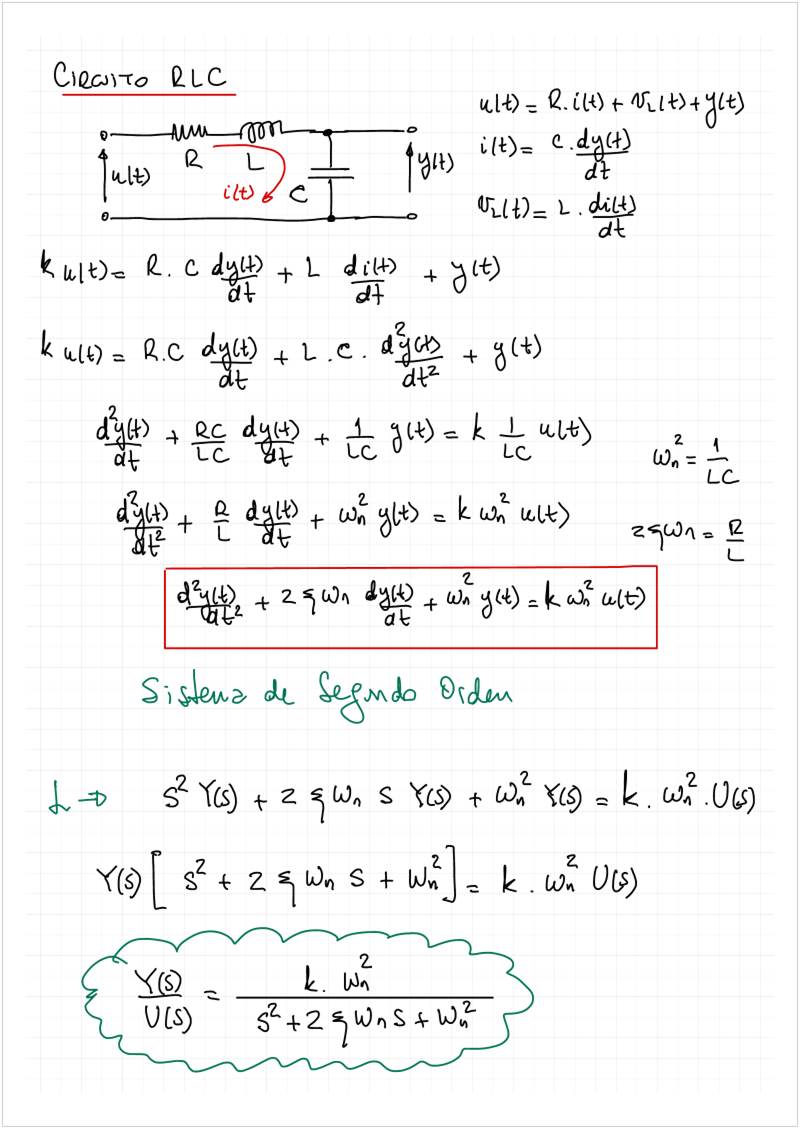 CIRCUITO RLC
u(t) = R.i(t) + v_L(t) + y(t)
i(t) = C . dy(t)/dt
v_L(t) = L . di(t)/dt
u(t) R L i(t) C y(t)
k u(t) = R . C dy(t)/dt + L di(t)/dt + y(t)
k u(t) = R.C dy(t)/dt + L . C . d²y(t)/dt² + y(t)
d²y(t)/dt + RC/LC dy(t)/dt + 1/LC y(t) = k 1/LC u(t)
ωn² = 1/LC
d²y(t)/dt² + R/L dy(t)/dt + ωn² y(t) = k ωn² u(t)
2ξωn = R/L
d²y(t)/dt² + 2ξωn dy(t)/dt + ωn² y(t) = k ωn² u(t)
Sistema de Segundo Orden
ℒ ⇒ S² Y(s) + 2 ξ ωn S Y(s) + ωn² Y(s) = k . ωn² . U(s)
Y(s) [ S² + 2 ξ ωn S + ωn² ] = k . ωn² U(s)
Y(s)/U(s) = k . ωn² / S² + 2 ξ ωn S + ωn²